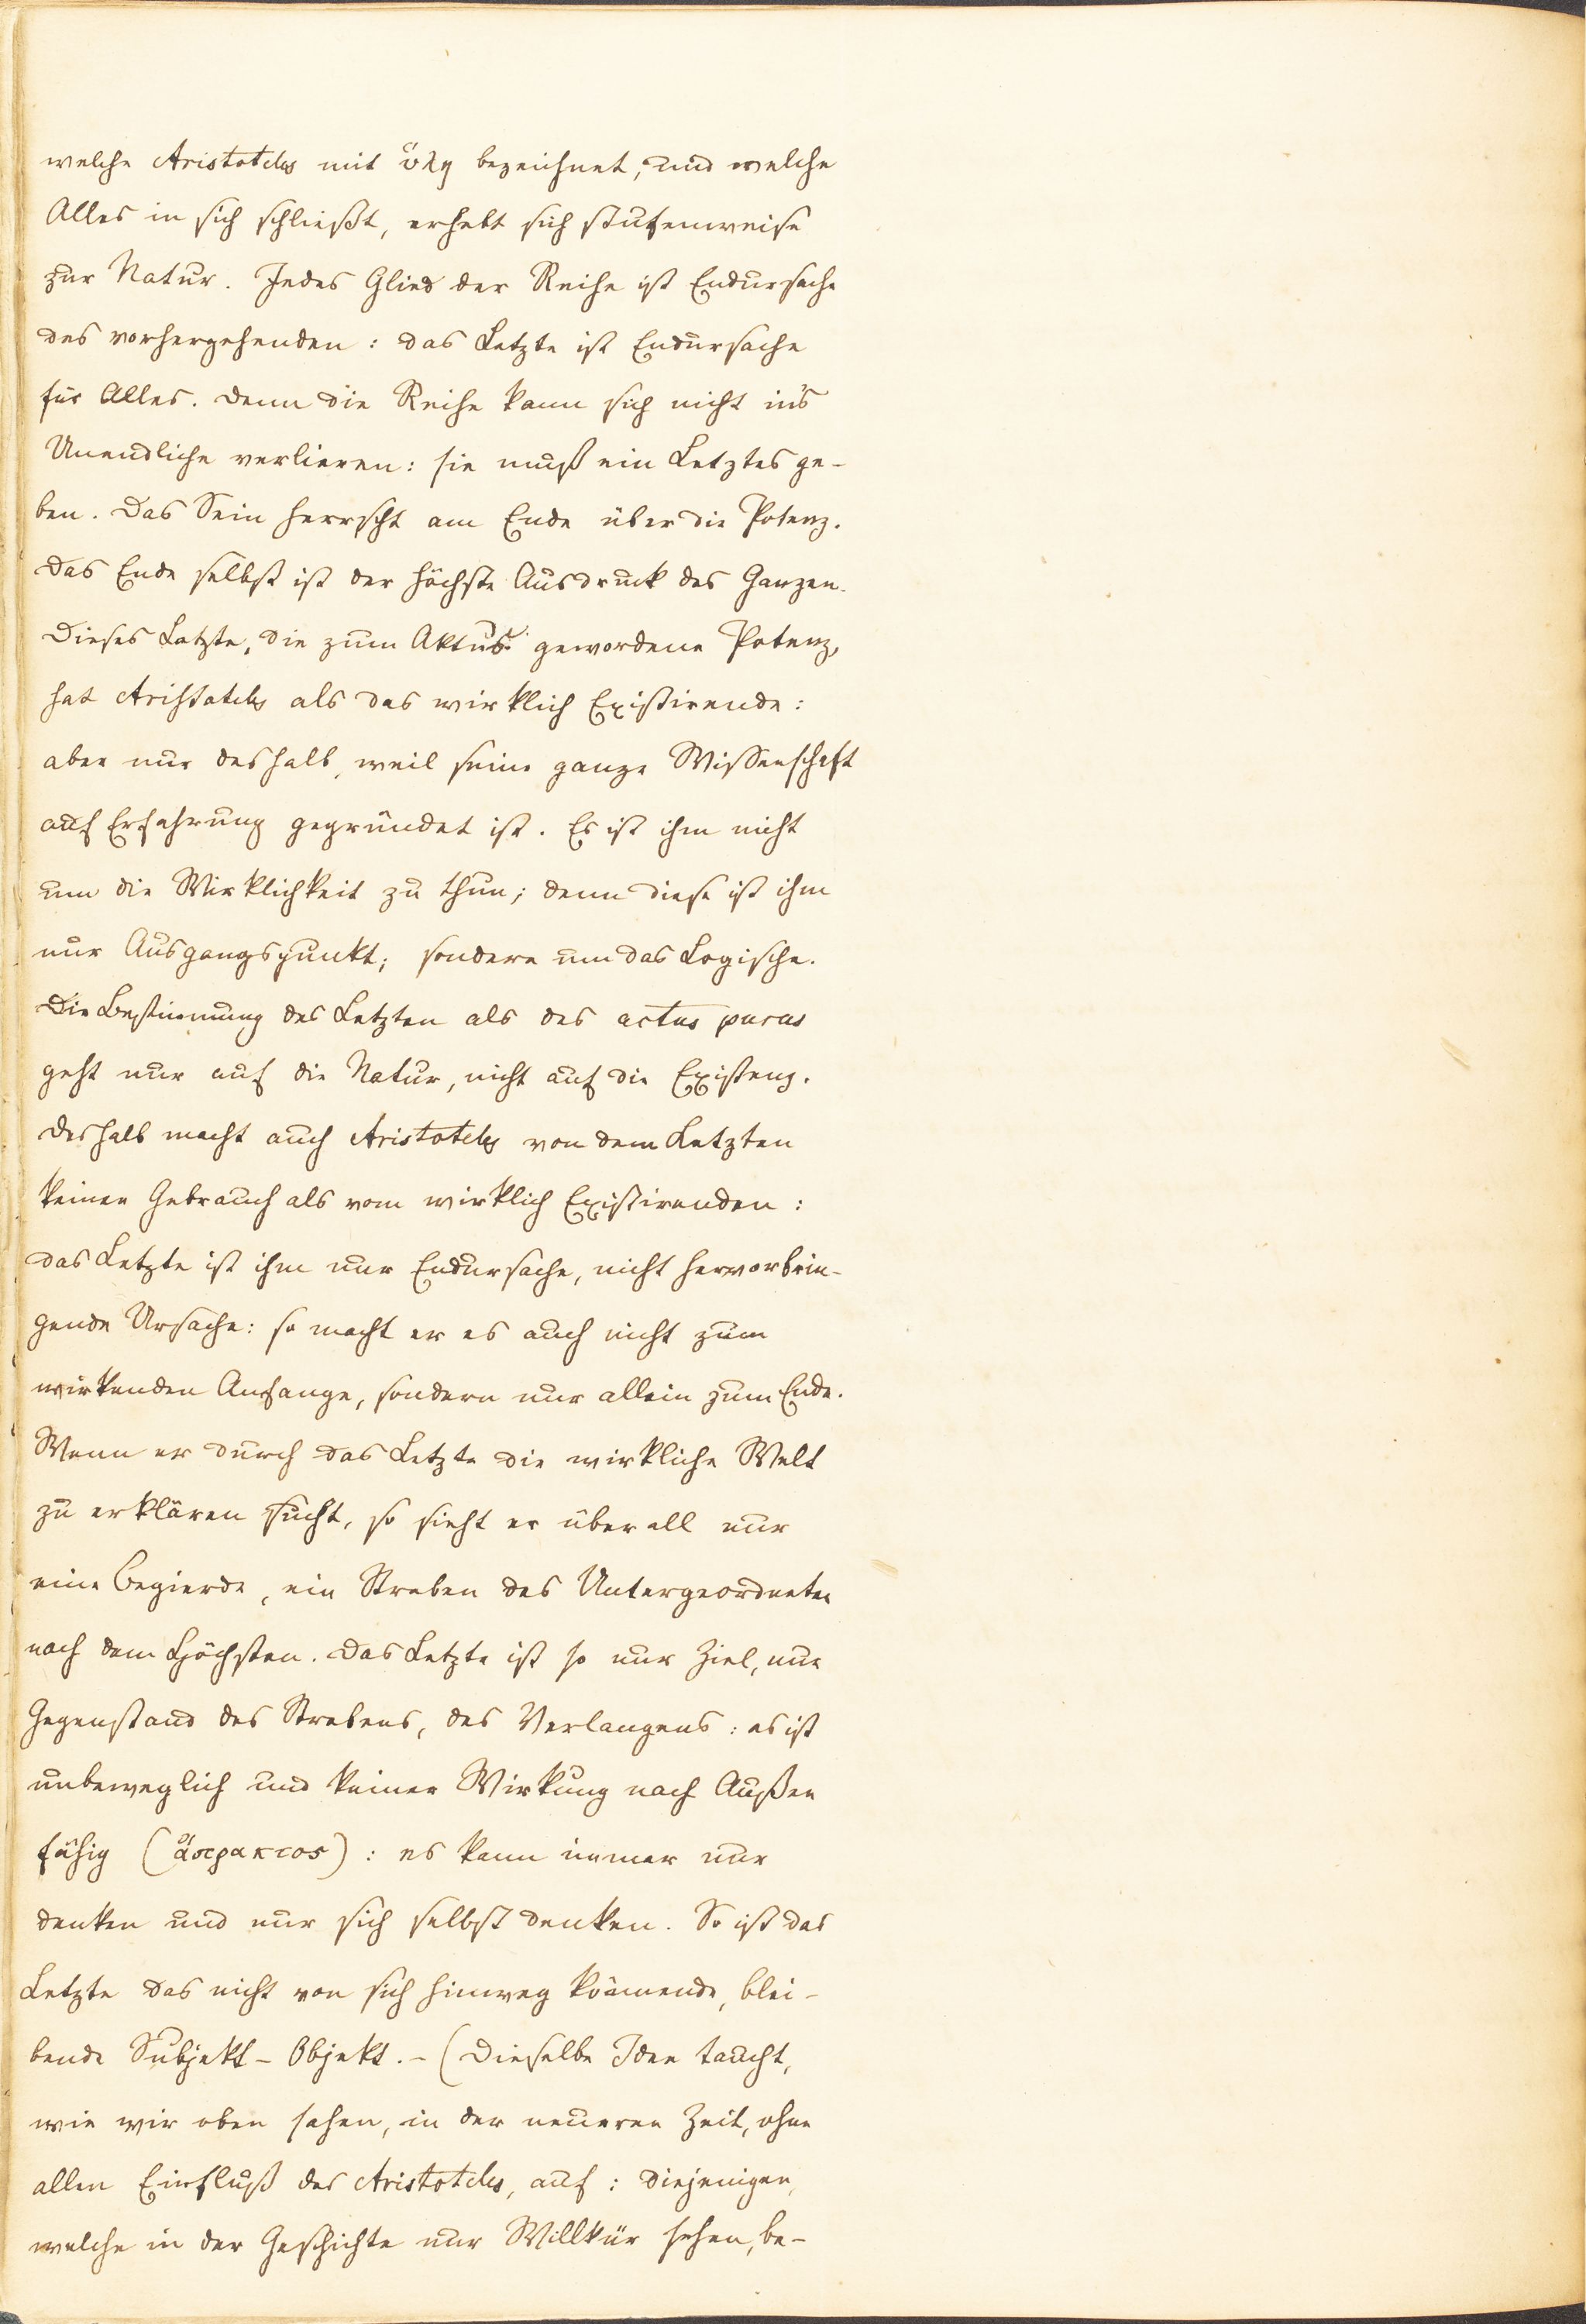 welche Aristoteles mit ὕλη bezeichnet, und welche
Alles in sich schließt, erhebt sich stufenweise
zur Natur. Jedes Glied der Reihe ist Endursache
des vorhergehenden: das Letzte ist Endursache
für Alles. Denn die Reihe kann sich nicht in's
Unendliche verlieren: sie muß ein Letztes ge-
ben. Das Sein herrscht am Ende über die Potenz.
Das Ende selbst ist der höchste Ausdruck des Ganzen.
Dieses Letzte, die zum Aktus gewordene Potenz,
hat Aristoteles als das wirklich Existirende:
aber nur deshalb, weil seine ganze Wissenschaft
auf Erfahrung gegründet ist. Es ist ihm nicht
um die Wirklichkeit zu thun; denn diese ist ihm
nur Ausgangspunkt; sondern um das Logische.
Die Bestimmung des Letzten als des actus purus
geht nur auf die Natur, nicht auf die Existenz.
Deshalb macht auch Aristoteles von dem Letzten
keinen Gebrauch als vom wirklich Existirenden:
das Letzte ist ihm nur Endursache, nicht hervorbrin-
gende Ursache: so macht er es auch nicht zum
wirkenden Anfange, sondern nur allein zum Ende.
Wenn er durch das Letzte die wirkliche Welt
zu erklären sucht, so sieht er überall nur
eine Begierde, ein Streben des Untergeordneten
nach dem Höchsten. Das Letzte ist so nur Ziel, nur
Gegenstand des Strebens, des Verlangens: es ist
unbeweglich und keiner Wirkung nach Außen
fähig (ἄπρακτος): es kann immer nur
denken und nur sich selbst denken. So ist das
Letzte das nicht von sich hinweg könnende, blei-
bende Subjekt-Objekt. - (Dieselbe Idee taucht,
wie wir oben sahen, in der neueren Zeit, ohne
allen Einfluß des Aristoteles, auf: diejenigen,
welche in der Geschichte nur Willkür sehen, be-